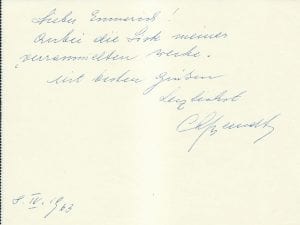 Lieber Emmerich!
Anbei die Liste meiner
"versammelten" Werke.
Mit besten Grüßen
herzlichst
8. IV. 1963